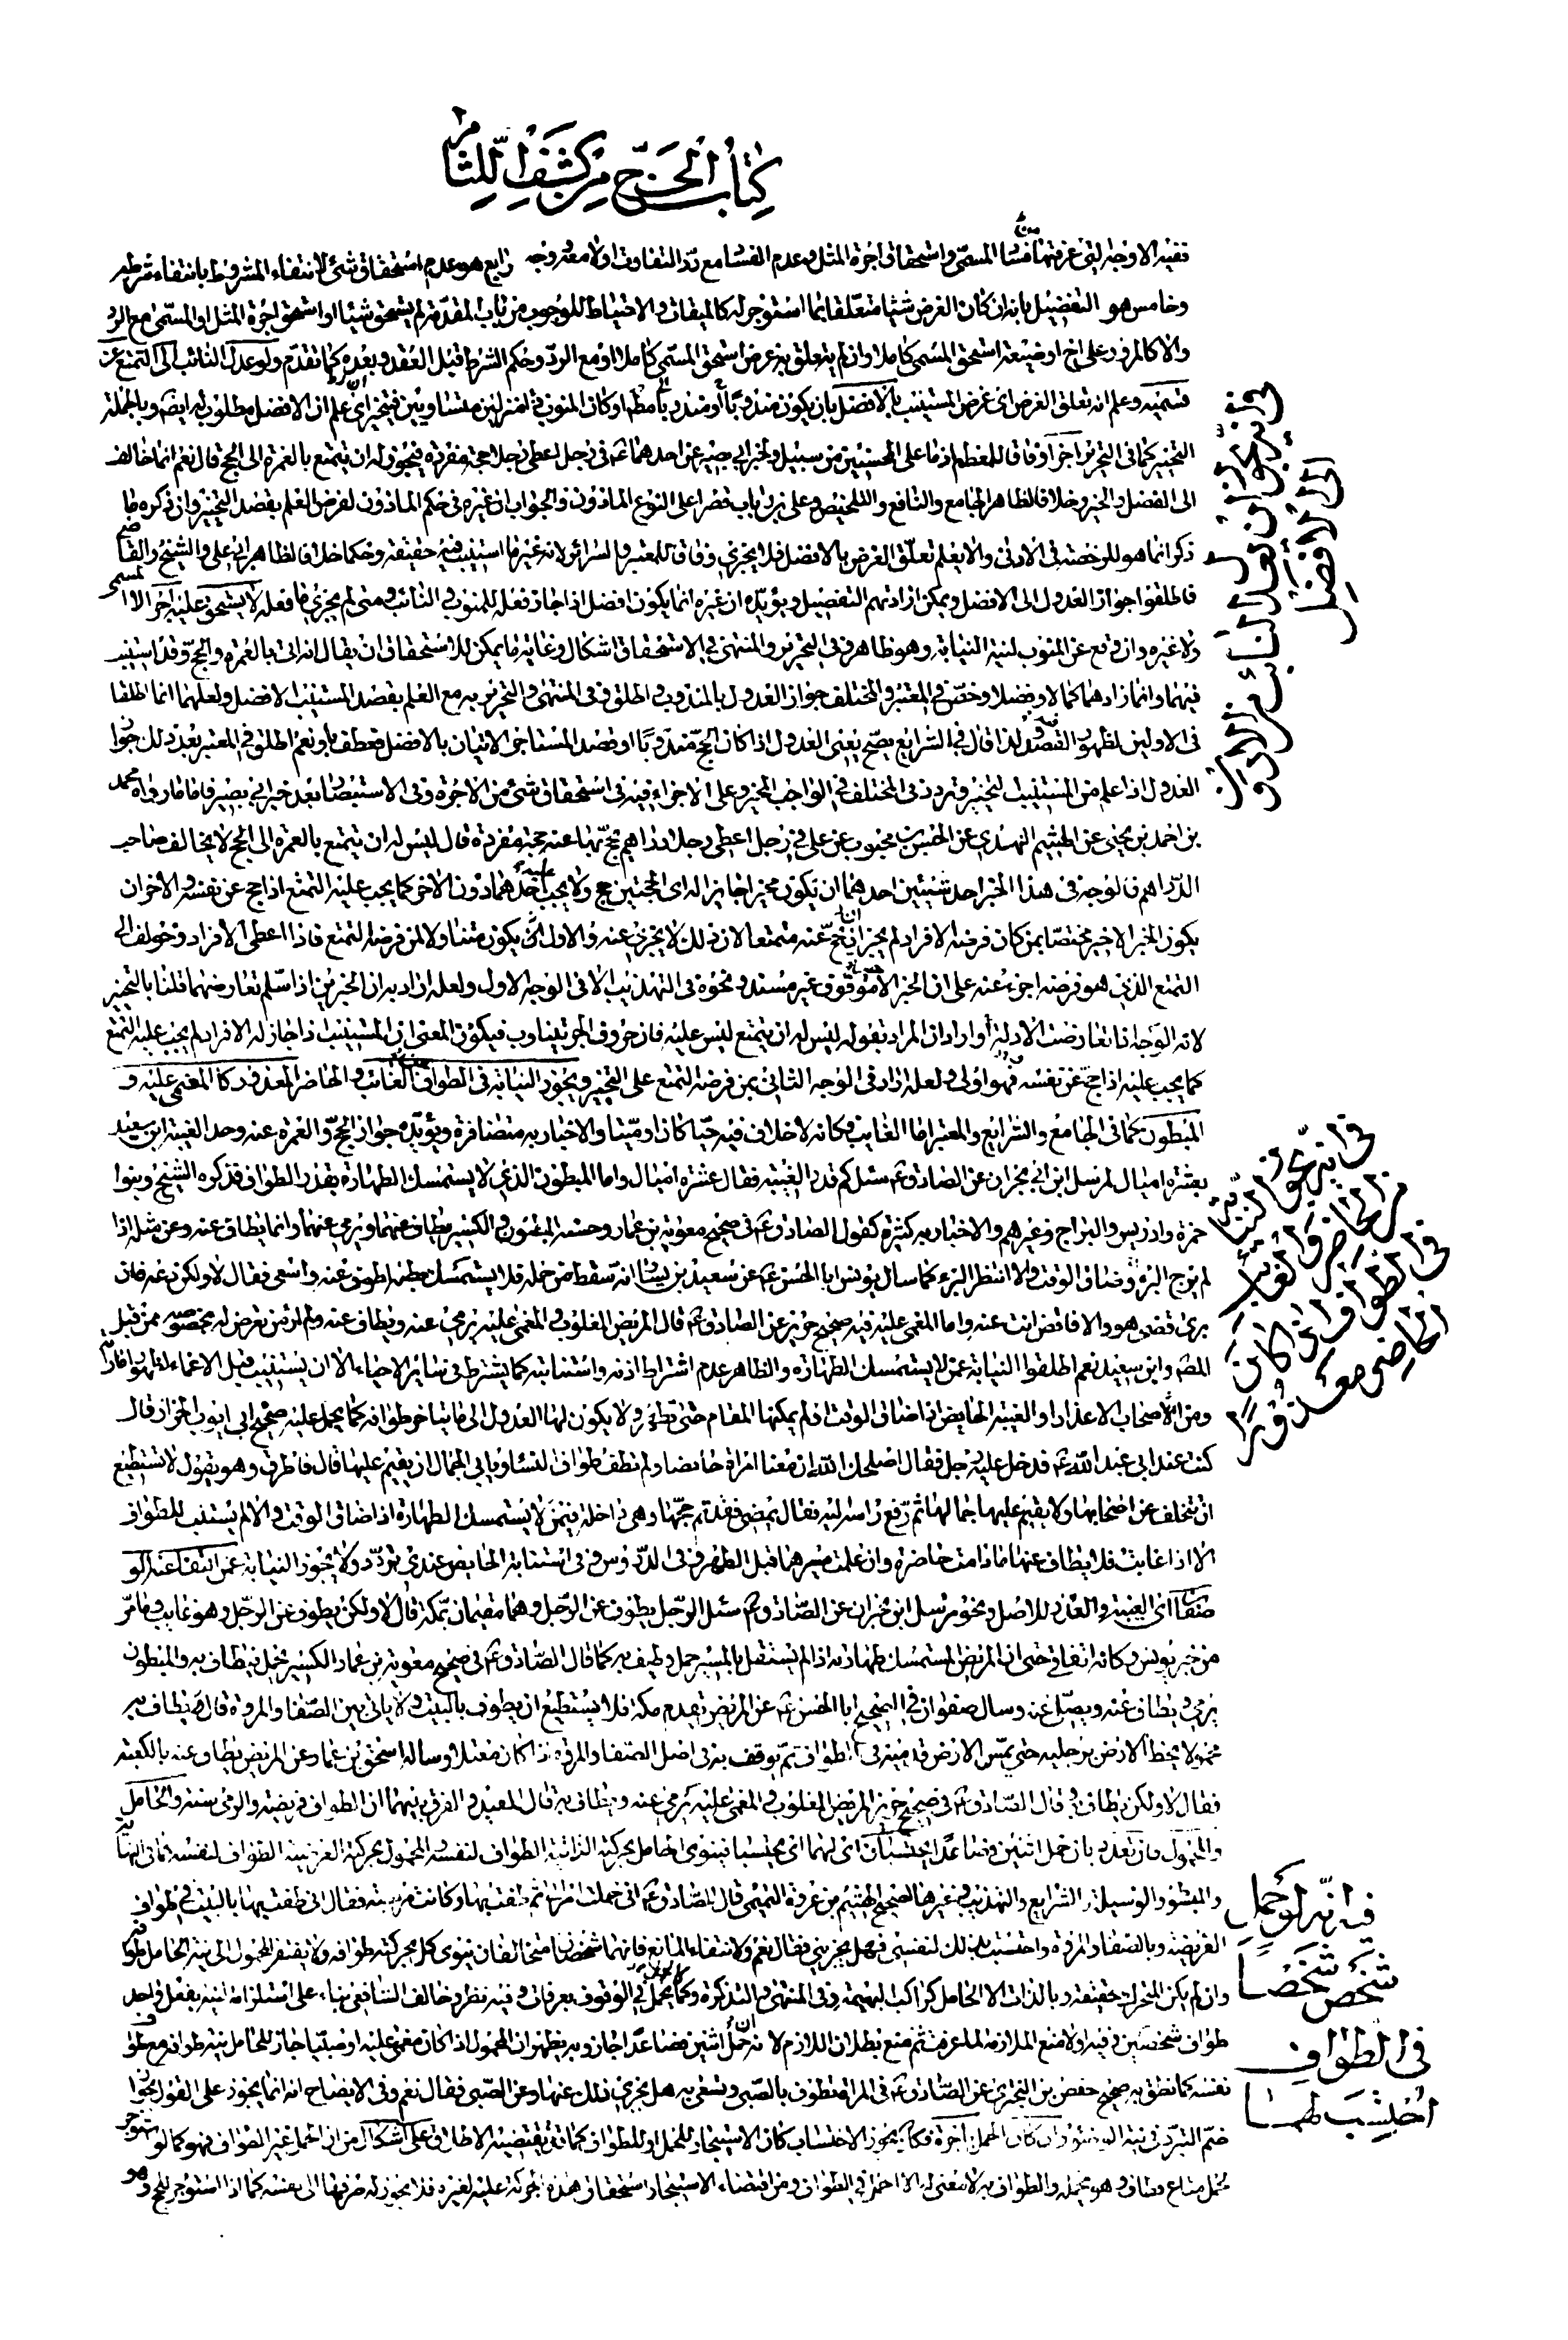 كتاب الحج من كشف اللثام
ففيه الاوجه التي عرفتها فساد المسمى واستحقاق اجرة المثل وعدم الفساد مع رد التفاوت اولا معه ووجه رابع هو عدم استحقاق شئ لانتفاء المشروط بانتفاء شرطه
وخامس هو التفضيل بانه ان كان الغرض شيئا متعلقا بما استوجر له كالميقات والاحتياط للوجوب من باب المقدمة لم يستحق شيئا او استحق اجرة المثل او المسمى مع الرد
والا كالمرور على اخ او ضيعة استحق المسمى كاملا وان لم يتعلق به غرض استحق المسمى كاملا او مع الرد وحكم الشرط قبل العقد وبعده كما تقدم ولو عدل النائب الى التمتع عن
قسميه وعلم انه تعلق الغرض اى غرض المستنيب بالافضل بان يكون مندوبا او مندورا مطلقا او كان المنوب ذا منزلين متساويين فيتخير اى علم ان الافضل مطلوب له ايضا وبالجملة
التخيير كما في التحرير اجزأ وفاقا للمعظم اذ ما على المحسنين من سبيل ولخبر ابي بصير عن احدهما ع في رجل اعطى رجلا حجة مفردة فيجوز له ان يتمتع بالعمرة الى الحج قال نعم انما خالف
الى الفضل والخير وخلافا لظاهر الجامع والنافع والتلخيص وعلى بن رئاب قصرا على النوع الماذون والجواب ان غيره في حكم الماذون لفرض العلم بقصد التخيير وان ذكره ما
ذكر انما هو للرخصة في الادنى والا يعلم تعلق الغرض بالافضل فلا يجزي وفاقا للمعتبر والسرائر لانه غير ما استنيب فيه حقيقة وحكما خلافا لظاهر ابي علي والشيخ والقاضي
فاطلقوا جواز العدول الى الافضل ويمكن ارادتهم التفصيل ويؤيده ان غيره انما يكون افضل اذا جاز فعله للمنوب والنائب ومتى لم يجزئ ما فعله لا يستحق عليه اجرا لا المسمى
ولا غيره وان وقع عن المنوب لنية النيابة وهو ظاهر وفي التحرير والمنتهى في الاستحقاق اشكال وغاية ما يمكن للاستحقاق ان يقال انه اتى بالعمرة والحج وقد استنيب
فيهما وانما زادهما كمالا وفضلا وخص في المعتبر والمختلف جواز العدول بالمندوب واطلق في المنتهى والتحرير به مع العلم بقصد المستنيب الافضل ولعلهما انما اطلقا
في الاولين لظهور القصد ولذا قال في الشرايع يصح يعني العدول اذا كان الحج مندوبا او قصد المستاجر الاتيان بالافضل فعطف باو ونعم اطلق في المعتبر بعد ذلك جواز
العدول اذا علم من المستنيب التخيير وتردد في المختلف في الواجب المخير وعلى الاجزاء ففيه في استحقاق شئ من الاجرة وفي الاستبصار بعد خبر ابي بصير فاما ما رواه محمد
بن احمد بن يحيى عن الهيثم النهدي عن الحسن بن محبوب عن علي في رجل اعطى رجلا دراهم يحج بها عنه حجة مفردة قال ليس له ان يتمتع بالعمرة الى الحج لا يخالف صاحب
الدراهم فالوجه في هذا الخبر احد شيئين احدهما ان يكون مخيرا جايزا له اى الحجتين حج ولا يجب عليه احدهما دون الاخر كما يجب عليه التمتع اذا حج عن نفسه والاخر ان
يكون الخبر الاخير مختصا بمن كان فرضه الافراد لم يجز ان يحج عنه متمتعا لان ذلك لا يجزي عنه والاول يكون متناولا لمن فرضه التمتع فاذا اعطى الافراد وخولف الى
التمتع الذي هو فرضه اجزء عنه على ان الخبر الاخير موقوف غير مسند ونحوه في التهذيب الا في الوجه الاول ولعله اراد به ان الخبرين اذا سلم تعارضهما قلنا بالتخيير
لانه الوجه اذا تعارضت الادلة او اراد ان المراد بقوله ليس له ان يتمتع ليس عليه فان حروف الجر يتناوب فيكون المعنى ان المستنيب اذا جاز له الافراد لم يجب عليه التمتع
كما يجب عليه اذا حج عن نفسه فهو اولى ولعله زاد في الوجه الثاني بمن فرضه التمتع على التخيير ويجوز النيابة في الطواف عن الغائب والحاضر المعذور كالمغمى عليه و
المبطون كما في الجامع والشرايع والمعتبر اما الغايب فكانه لا خلاف فيه حيا كان او ميتا والاخبار به متضافرة ويؤيده جواز الحج والعمرة عنه وحد الغيبة ابن سعيد
بعشرة اميال لمرسل ابن ابي نجران عن الصادق ع سئل كم قدر الغيبة فقال عشرة اميال واما المبطون الذي لا يستمسك الطهارة بقدر الطواف فذكره الشيخ وبنوا
حمزة وادريس والبراج وغيرهم والاخبار به كثيرة كقول الصادق ع في صحيح معوية بن عمار وحسنه المبطون والكسير يطاف عنهما ويرمى عنهما وانما يطاف عنه وعن مثله اذا
لم يرج البرء وضاق الوقت والا انتظر البرء كما سال يونس ابا الحسن ع عن سعيد بن يسار انه سقط من جمله فلا يستمسك بطنه اطوف عنه واسعى فقال لا ولكن دعه فان
برئ قضى هو والا فاقض انت عنه واما المغمى عليه ففيه صحيح حريز عن الصادق ع قال المريض المغلوب والمغمى عليه يرمى عنه ويطاف عنه ولم ار من تعرض له بخصوصه ممن قبل
المصنف وابن سعيد نعم اطلقوا النيابة عمن لا يستمسك الطهارة والظاهر عدم اشتراط اذنه واستنابته كما يشترط في سائر الاحياء الا ان يستنيب قبل الاغماء
ومن اصحاب الاعذار او الغيبة الحايض اذا ضاق الوقت او لم يمكنها المقام حتى تطهر ولا يكون لها العدول الى ما يتاخر طوافه كما يحمل عليه صحيح ابي ايوب الخزاز قال
كنت عند ابي عبد الله ع فدخل عليه رجل فقال اصلحك الله ان معنا امراة حائضا ولم تطف طواف النساء ويابى الجمال ان يقيم عليها قال فاطرق وهو يقول لا تستطيع
ان تتخلف عن اصحابها ولا يقيم عليها جمالها ثم رفع راسه اليه فقال تمضي فقد تم حجها وهي داخلة فيمن لا يستمسك الطهارة اذا ضاق الوقت والا لم يستنب للطواف
الا اذا غابت فلا يطاف عنها ما دامت حاضرة وان علمت مسيرها قبل الطهر وفي الدروس وفي استنابة الحايض عندي تردد ولا يجوز النيابة عمن انتفا عنه الو
صفان اى الغيبة والعذر للاصل ونحو مرسل ابن نجران عن الصادق ع سئل الرجل يطوف عن الرجل وهما مقيمان بمكة قال لا ولكن يطوف عن الرجل وهو غايب وما مر
من خبر يونس وكانه اتفاقي حتى ان المريض المستمسك طهارته اذا لم يستقل بالمسير حمل وطيف به كما قال الصادق ع في صحيح معوية بن عمار الكسير يحمل فيطاف به والمبطون
يرمى ويطاف عنه ويصلى عنه وسال صفوان في الصحيح ابا الحسن ع عن المريض يقدم مكة فلا يستطيع ان يطوف بالبيت ولا ياتي بين الصفا والمروة قال يطاف به
محمولا يخط الارض برجليه حتى يمس الارض قدميه في الطواف ثم يوقف به في اصل الصفا والمروة اذا كان معتلا وساله اسحق بن عمار عن المريض يطاف عنه بالكعبة
فقال لا ولكن يطاف به وقال الصادق ع في صحيح حريز المريض المغلوب والمغمى عليه يرمى عنه ويطاف به قال المفيد والفرق بينهما ان الطواف فريضة والرمى سنة والحامل
والمحمول وان تعدد بان حمل اثنين فصاعدا يحتسبان اى لهما اى يحتسبا فينوى الحامل بحركته الذاتية الطواف لنفسه والمحمول بحركته العرضية الطواف لنفسه كما في النهاية
والمبسوط والوسيلة والشرايع والتهذيب وغيرها لصحيح الهيثم بن عروة التميمي قال للصادق ع اني حملت امراتي ثم طفت بها وكانت مريضة فقال اني طفت بها بالبيت في طواف
الفريضة وبالصفا والمروة واحتسبت بذلك لنفسي فهل يجزيني فقال نعم ولانتفاء المانع فانهما شخصان متخالفان ينوى كل بحركته طوافه ولا يفتقر المحمول الى نية الحامل طوافه
وان لم يكن المتحرك حقيقة وبالذات الا الحامل كراكب البهيمة وفي المنتهى والتذكرة وكما يحمل في الوقوف بعرفات وفيه نظر وخالف الشافعي بناء على استلزامه تادية بفعل واحد
طواف شخصين وفيه اولا منع الملازمة لما عرفت ثم منع بطلان اللازم لانه ان حمل اثنين فصاعدا جاز وبه يظهر ان المحمول اذا كان مغمى عليه او صبيا جاز للحامل نية طوافه مع طواف
نفسه كما نطق به صحيح حفص بن البختري عن الصادق ع في المراة تطوف بالصبي وتسعى به هل يجزي ذلك عنها وعن الصبي فقال نعم وفي الايضاح انه انما يجوز على القول بجواز
ضم التبرد في نية الوضوء وان كان الحمل باجرة فكما يجوز الاحتساب كان الاستيجار للحمل او للطواف كما يقتضيه الاطلاق على اشكال من ان الحمل غير الطواف فهو كما لو استوجر
لحمل متاع فطاف وهو يحمله والطواف به لا معنى له الا الحمل في الطواف ومن اقتضاء الاستيجار استحقاق هذه الحركة عليه لغيره فلا يجوز له صرفها الى نفسه كما اذا استوجر للحج وهو
في انه يجوز ان يعدل النائب عن الادون
الى الافضل
في انه يجوز النيابة
عن الحاضر والغايب
في الطواف ان كان
الحاضر معذورا
في انه لو حمل
شخص شخصا
في الطواف
احتسب لهما